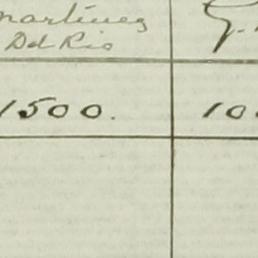 Martinez
Del Rio
1500.